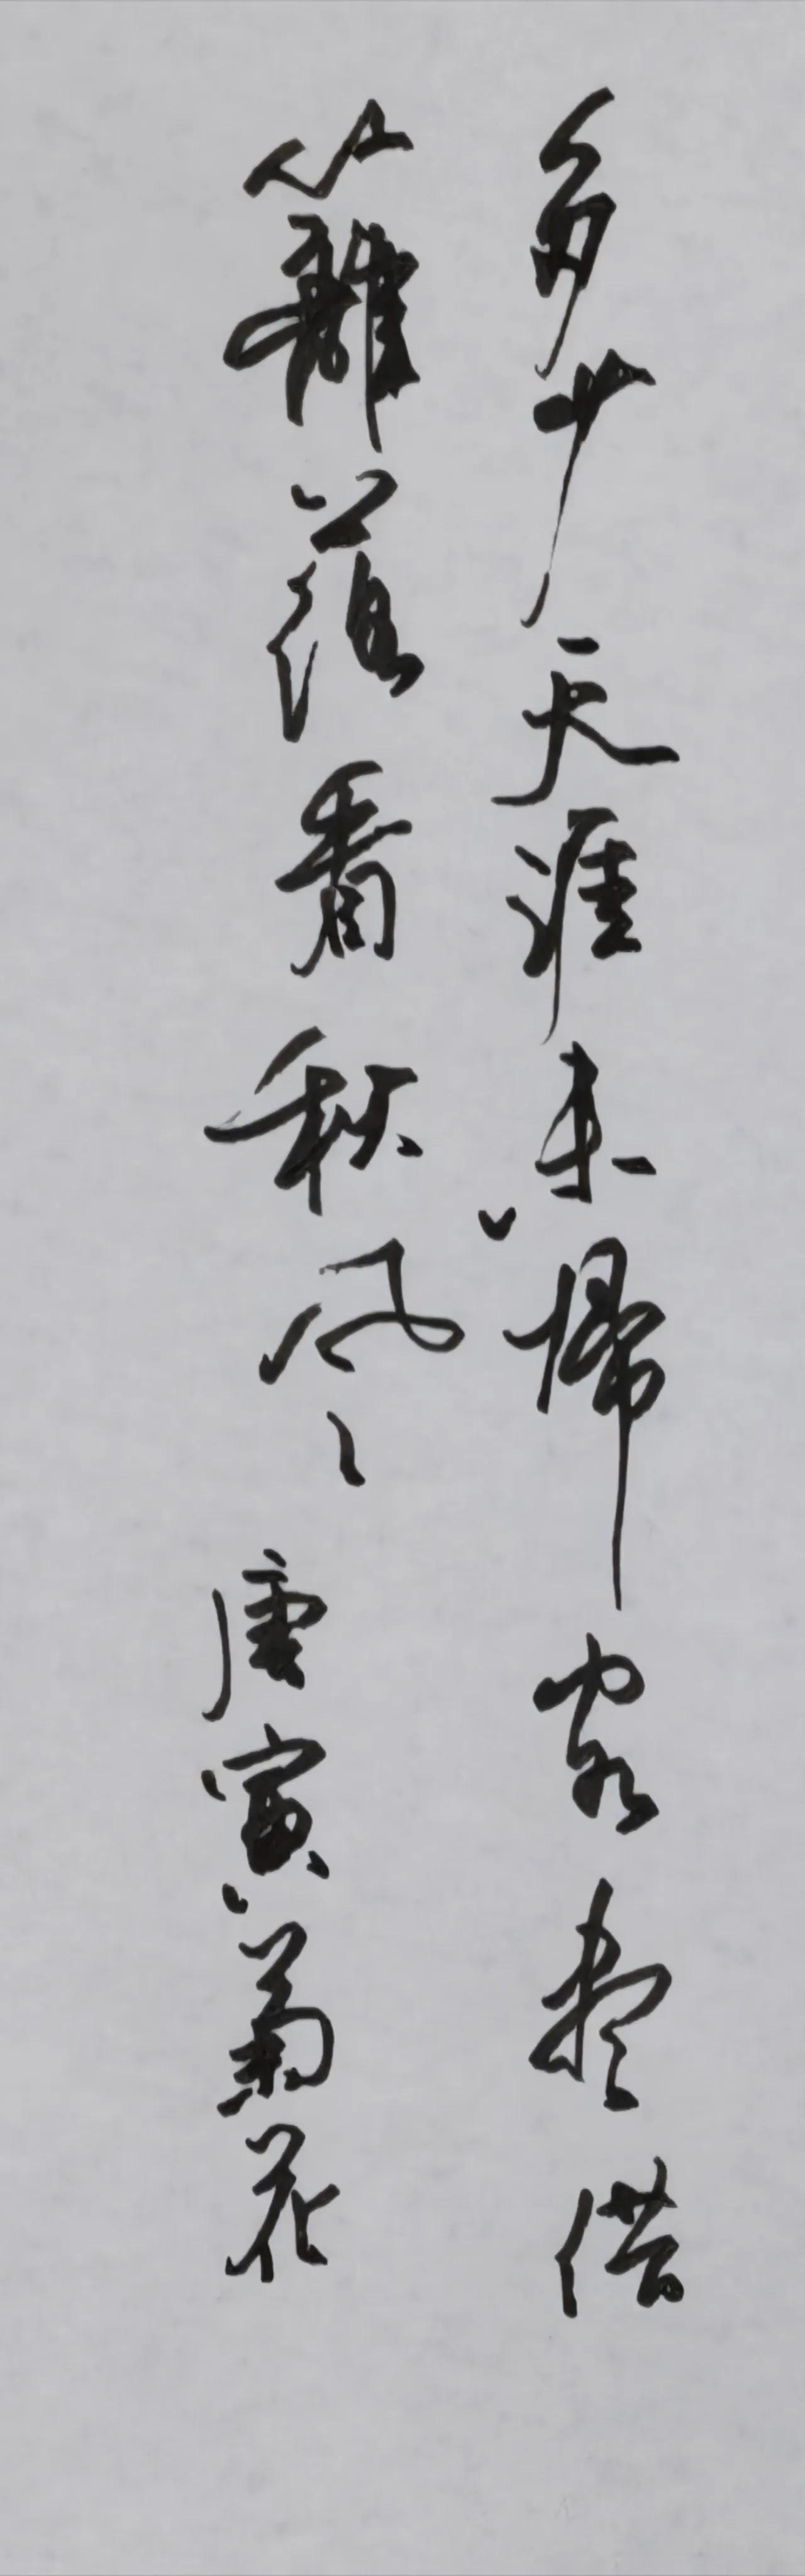 多少天涯未歸客盡借
籬落看秋風 唐寅菊花